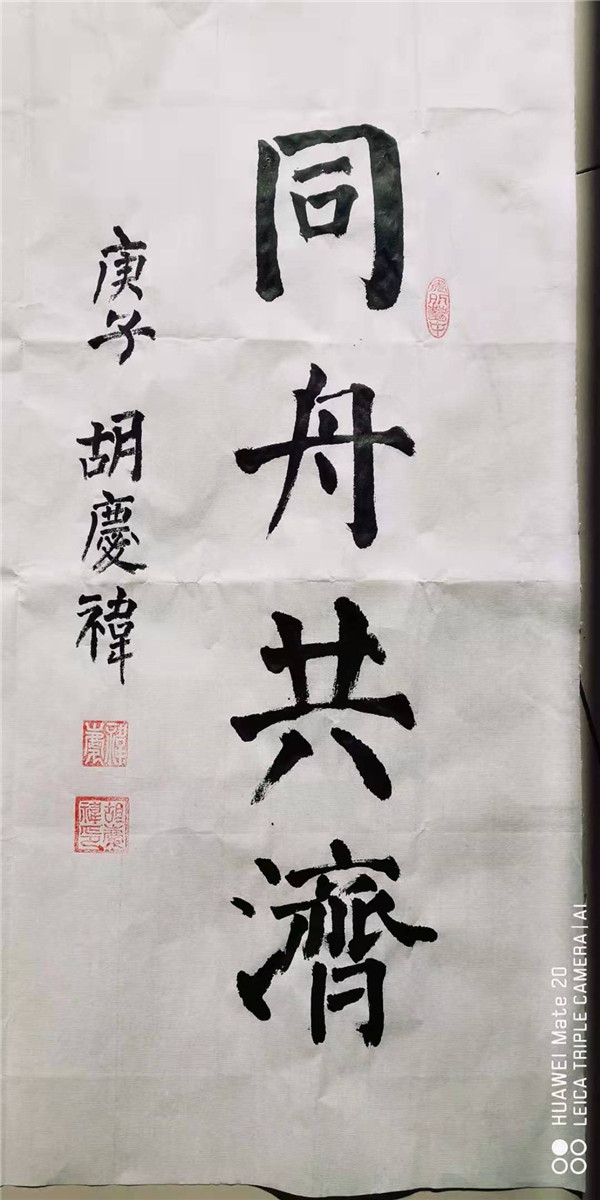 同舟共濟
庚子 胡慶禕
胡慶
禕印
HUAWEI Mate 20
LEICA TRIPLE CAMERA | AI